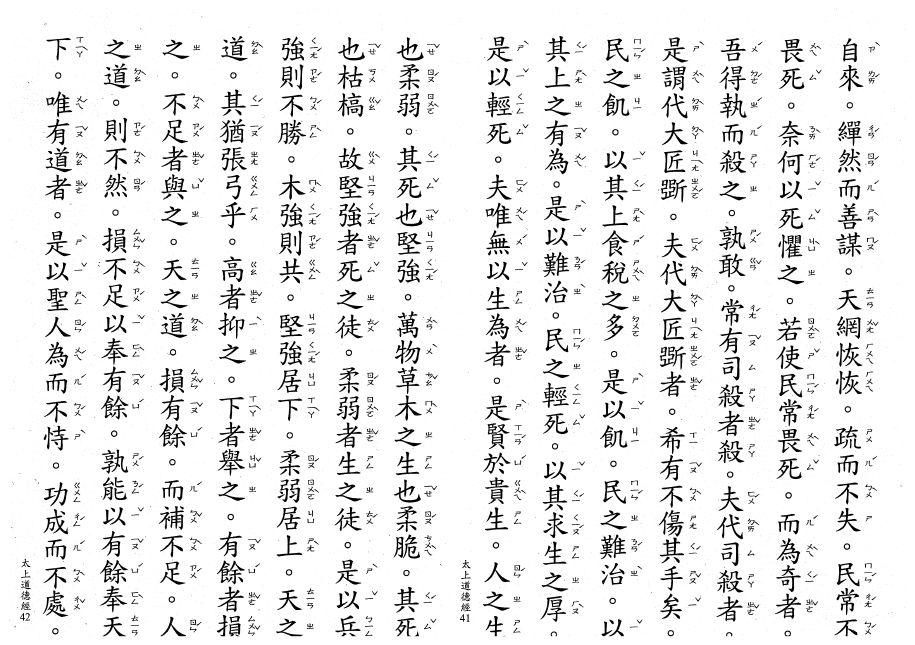 自來。繟然而善謀。天網恢恢。疏而不失。民常不
畏死。奈何以死懼之。若使民常畏死。而為奇者。
吾得執而殺之。孰敢。常有司殺者殺。夫代司殺者。
是謂代大匠斲。夫代大匠斲者。希有不傷其手矣。
民之飢。以其上食稅之多。是以飢。民之難治。以
其上之有為。是以難治。民之輕死。以其求生之厚。
是以輕死。夫唯無以生為者。是賢於貴生。人之生
太上道德經41
也柔弱。其死也堅強。萬物草木之生也柔脆。其死
也枯槁。故堅強者死之徒。柔弱者生之徒。是以兵
強則不勝。木強則共。堅強居下。柔弱居上。天之
道。其猶張弓乎。高者抑之。下者舉之。有餘者損
之。不足者與之。天之道。損有餘。而補不足。人
之道。則不然。損不足以奉有餘。孰能以有餘奉天
下。唯有道者。是以聖人為而不恃。功成而不處。
太上道德經42